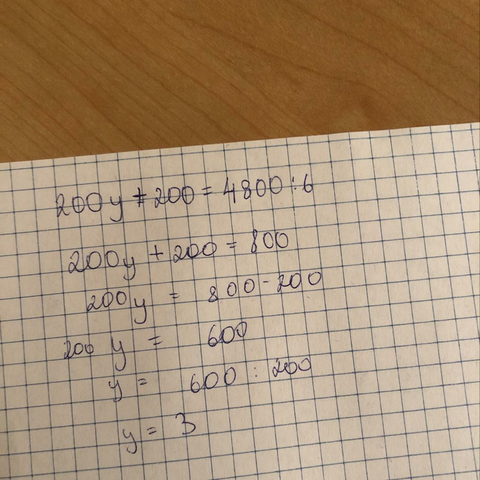 200y + 200 = 4800 : 6
200y + 200 = 800
200y = 800 - 200
200 y = 600
y = 600 : 200
y = 3